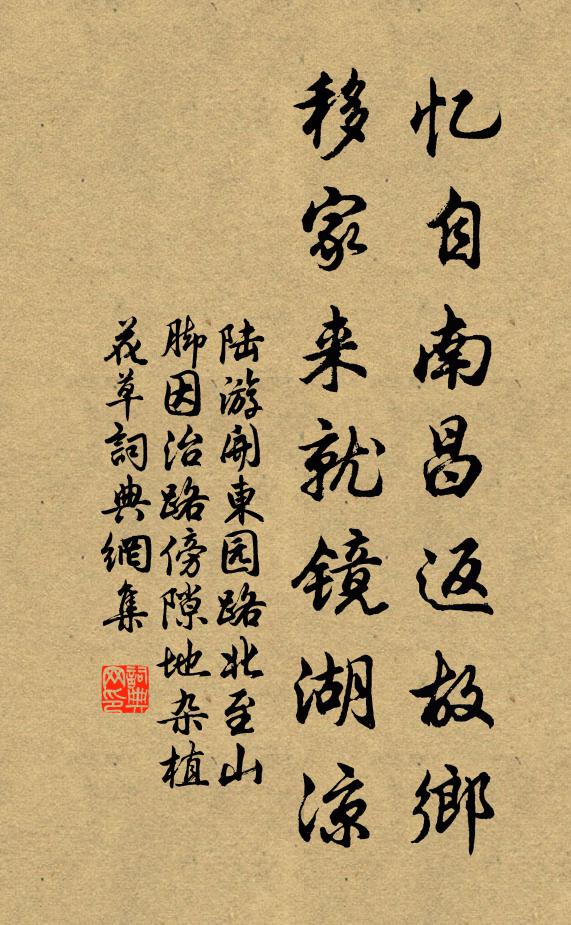 忆自南昌返故鄉
移家来就镜湖凉
陆游開東园路北至山
脚因治路傍隙地杂植
花草詞典網集
詞典
网印